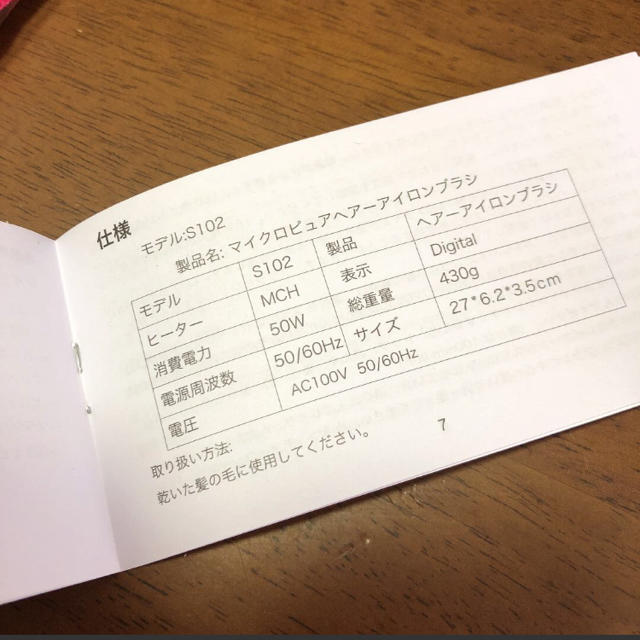 仕様
モデル:S102
製品名: マイクロピュアヘアーアイロンブラシ
モデル S102 製品 ヘアーアイロンブラシ
ヒーター MCH 表示 Digital
消費電力 50W 総重量 430g
電源周波数 50/60Hz サイズ 27*6.2*3.5cm
電圧 AC100V 50/60Hz
取り扱い方法:
乾いた髪の毛に使用してください。
7